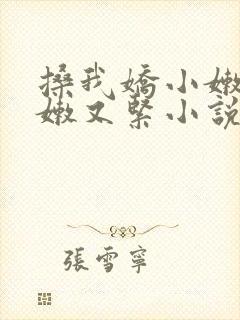 搡我嬌小嫩
嫩又緊小說
張雪寧